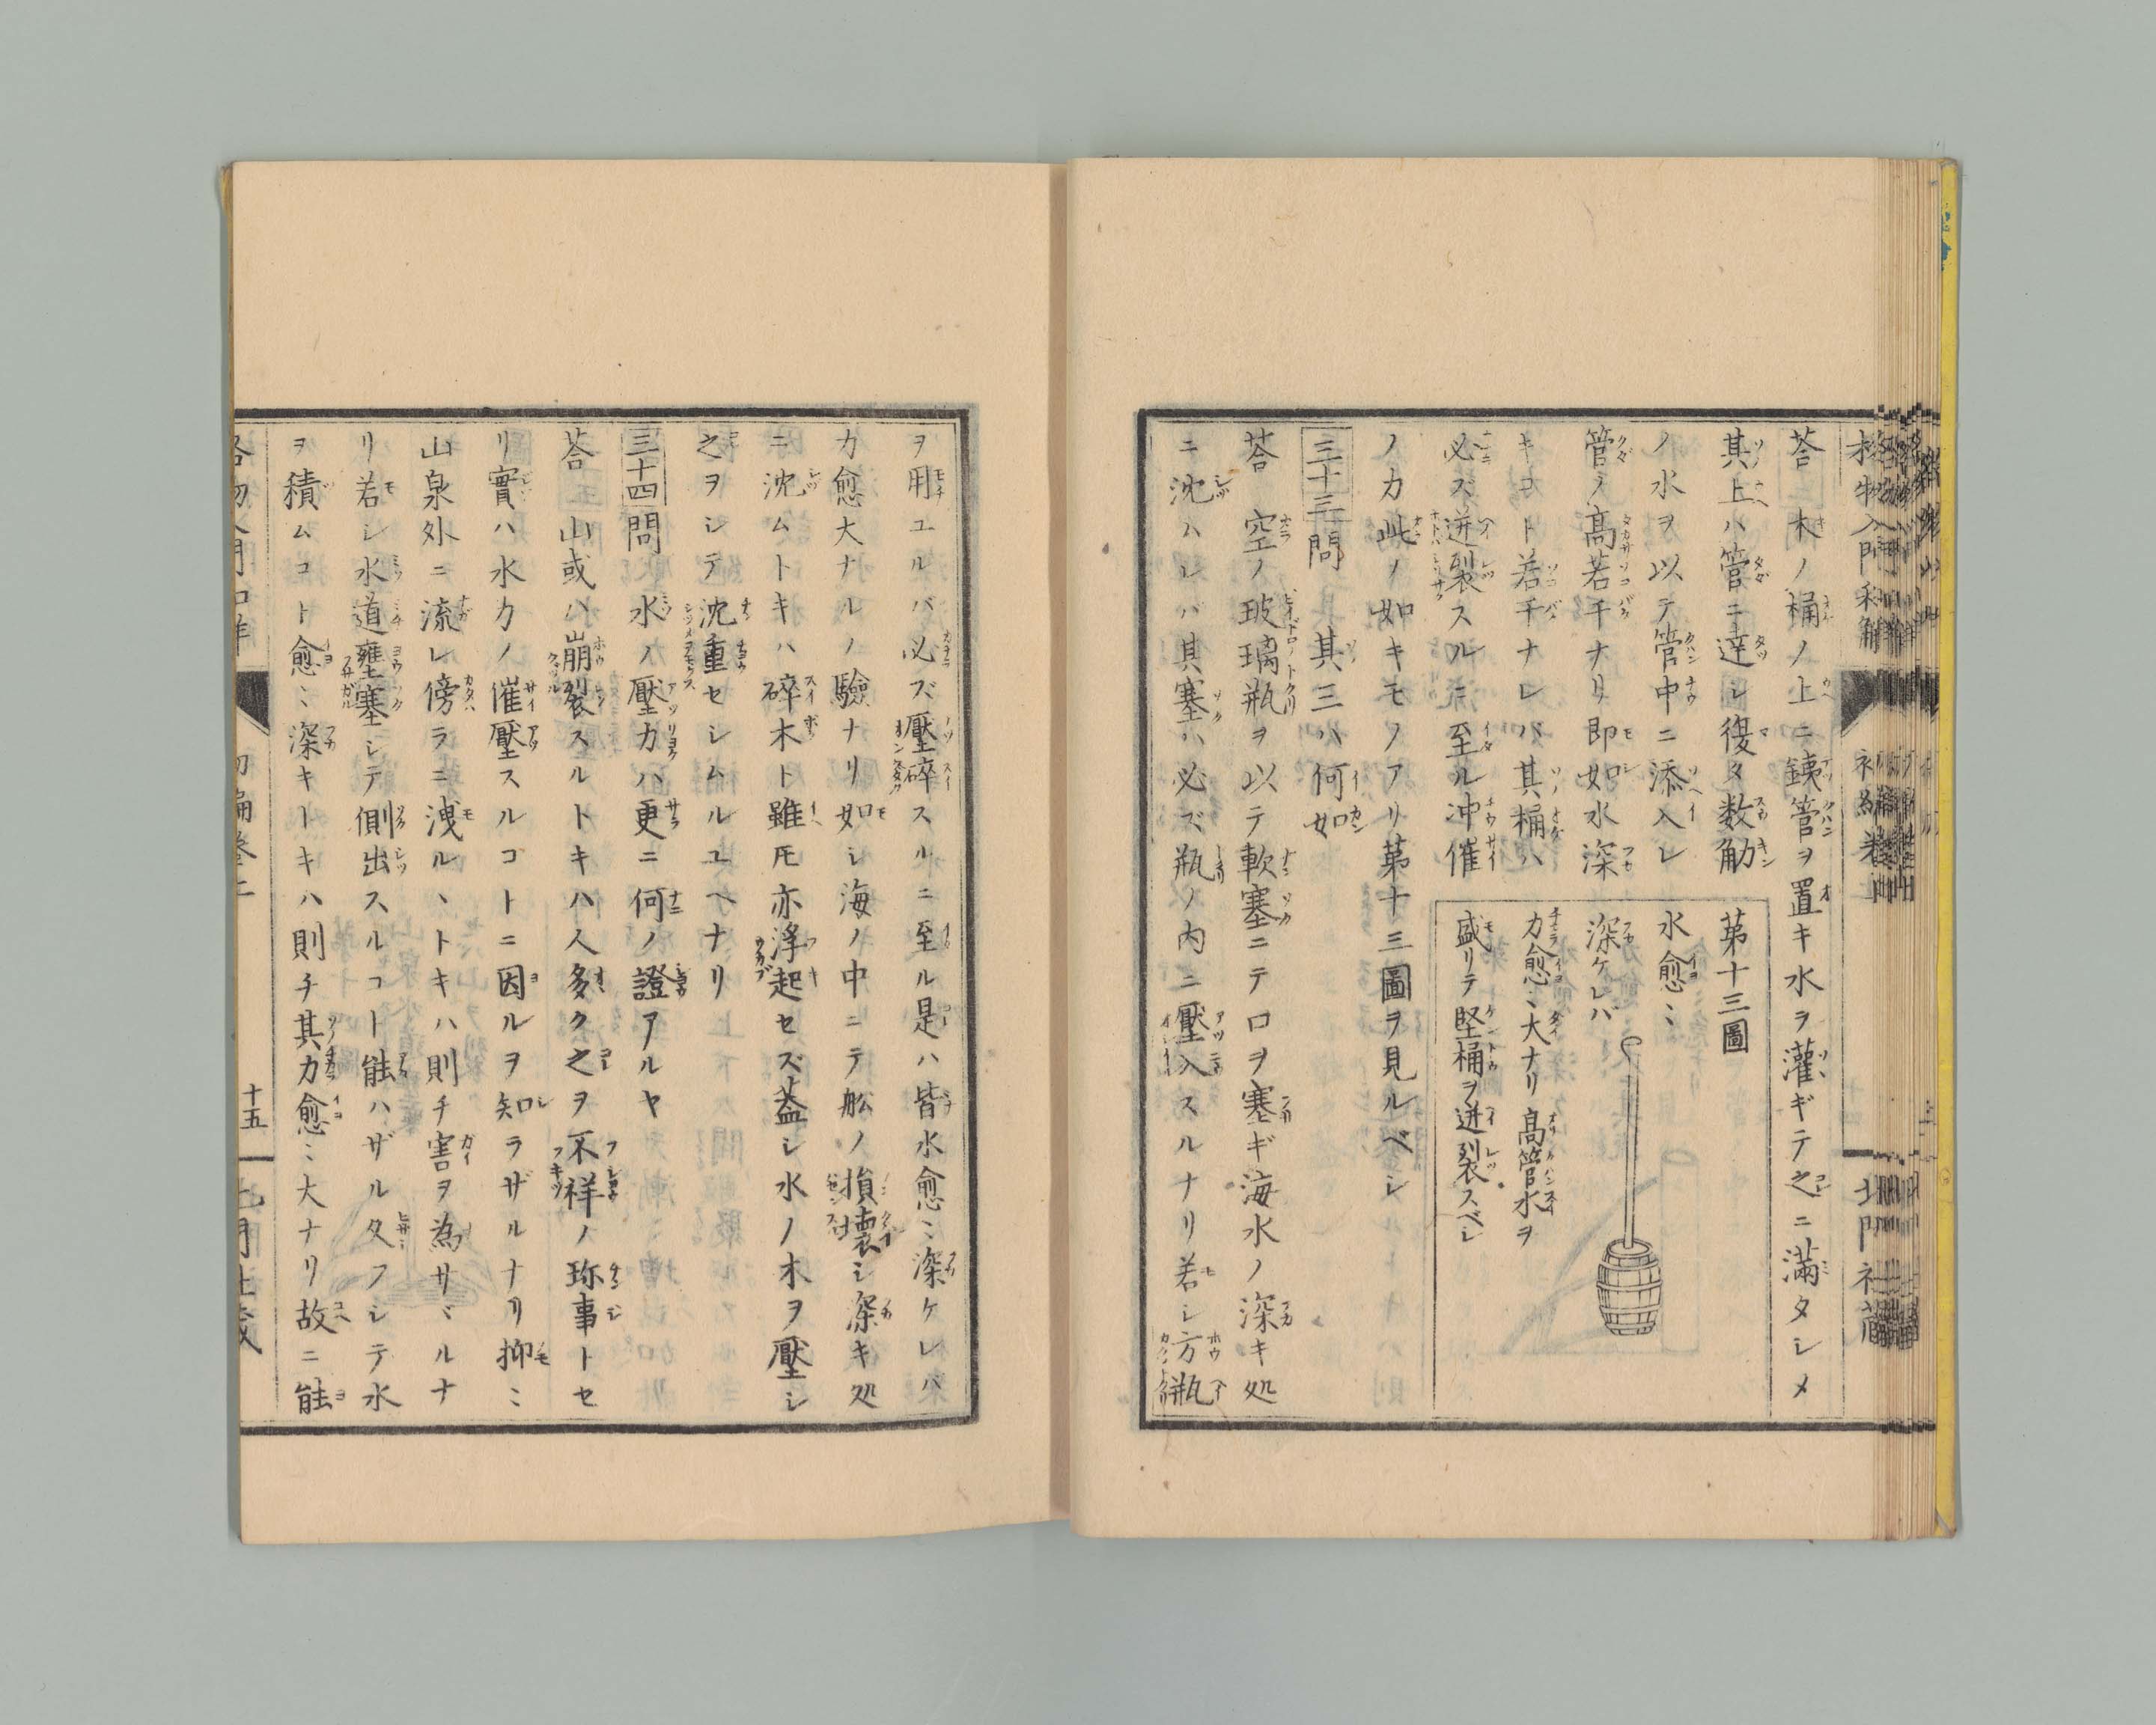 格物入門和解 初編巻上 北門社蔵
荅 木ノ桶ノ上ニ銕管ヲ置キ水ヲ灌ギテ之ニ満タシメ
其上ハ管ニ達シ復タ数觔
ノ水ヲ以テ管中ニ添入レ
管ノ高若干ナリ即如水深
キコト若干ナレバ其桶ハ
必ズ迸裂スルニ至ル冲催
ノ力此ノ如キモノアリ苐十三圖ヲ見ルベシ
苐十三圖
水愈〻
深ケレバ
力愈〻大ナリ高管水ヲ
盛リテ堅桶ヲ迸裂スベシ
三十三問 其三ハ何如
荅 空ノ玻璃瓶ヲ以テ軟塞ニテ口ヲ塞ギ海水ノ深キ処
ニ沈ムレバ其塞ハ必ズ瓶ノ内ニ壓入スルナリ若シ方瓶
ヲ用ユルバ必ズ壓碎スルニ至ル是ハ皆水愈〻深ケレバ
力愈大ナルノ驗ナリ如シ海ノ中ニテ舩ノ損壊シ深キ処
ニ沈ムトキハ碎木ト雖𪜈亦浮起セズ蓋シ水ノ木ヲ壓シ
之ヲシテ沈重セシムルユヘナリ
三十四問 水ノ壓力ハ更ニ何ノ證アルヤ
荅 山或ハ崩裂スルトキハ人多ク之ヲ不祥ノ珎事トセ
リ實ハ水力ノ催壓スルコトニ因ルヲ知ラザルナリ抑〻
山泉外ニ流レ傍ラニ洩ルヽトキハ則チ害ヲ為サヾルナ
リ若シ水道壅塞シテ側出スルコト能ハザルタフシテ水
ヲ積ムコト愈〻深キトキハ則チ其力愈〻大ナリ故ニ能
格物入門和解 初編巻上 十五 北門社蔵